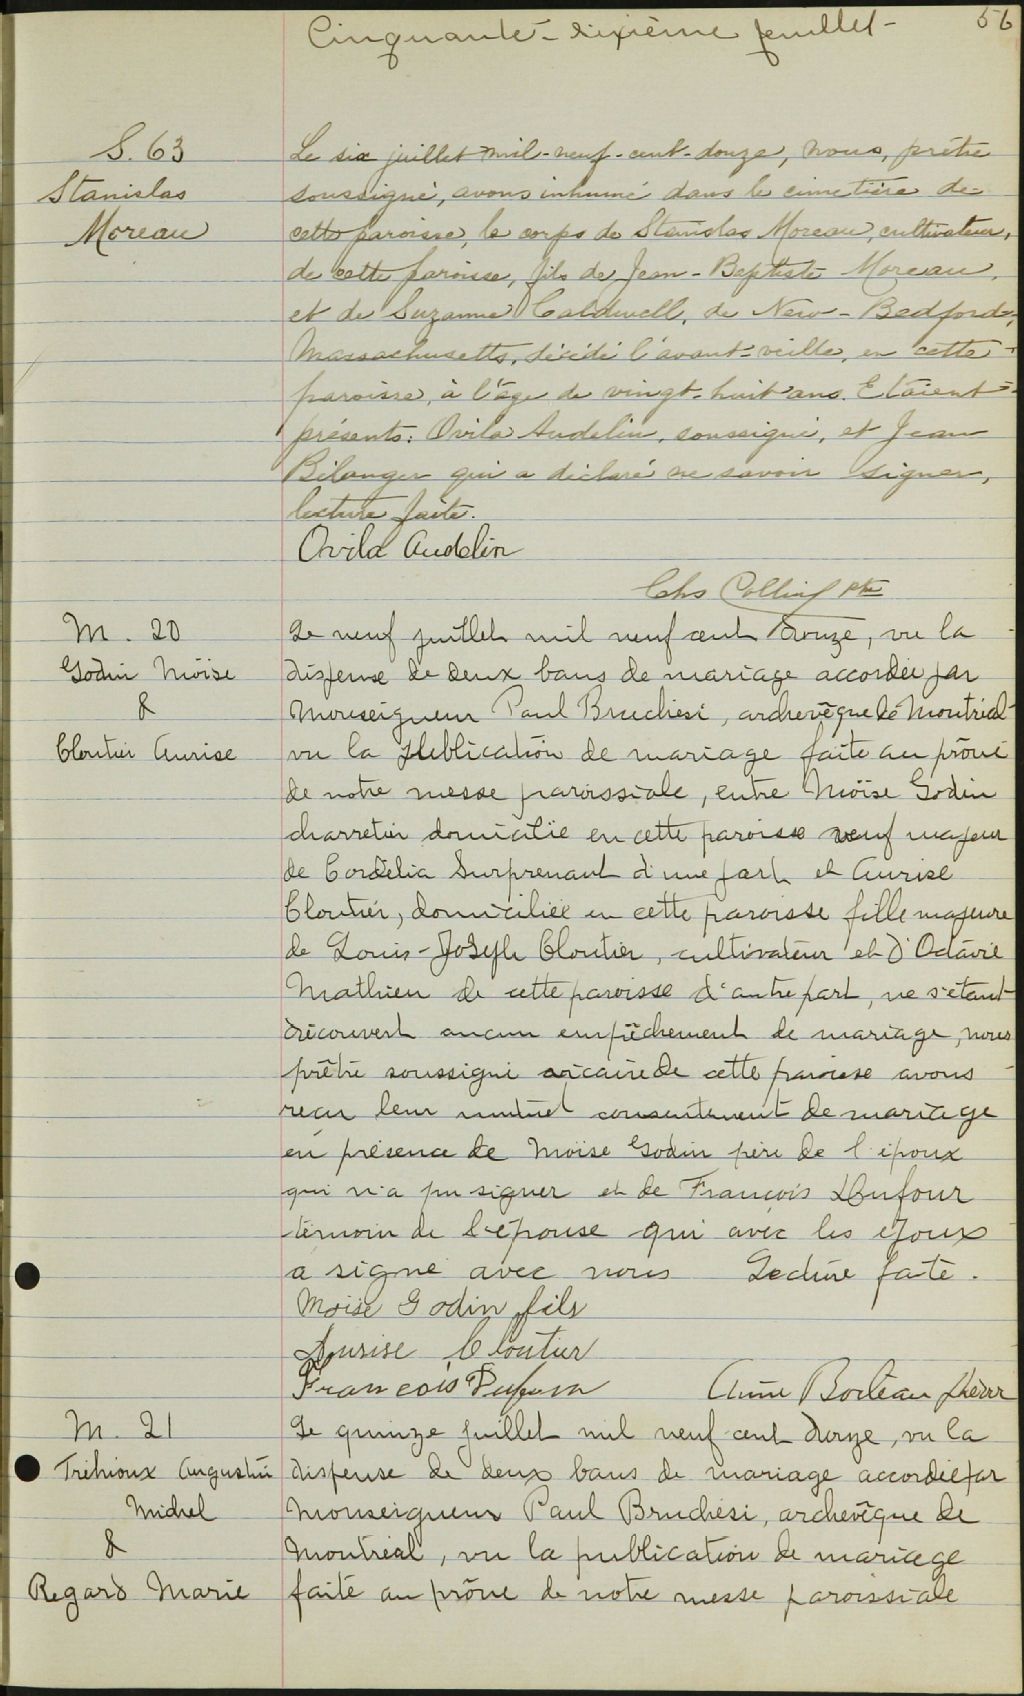 Cinquante-sixième feuillet-
56
S. 63
Stanislas
Moreau
Le six juillet mil-neuf-cent-douze, nous, prêtre
soussigné, avons inhumé dans le cimetière de
cette paroisse, le corps de Stanislas Moreau, cultivateur,
de cette paroisse, fils de Jean-Baptiste Moreau,
et de Suzanne Caldwell, de New-Bedford,
Massachusetts, décédé l'avant-veille, en cette
paroisse, à l'âge de vingt-huit ans. Etaient
présents: Ovila Audelin, soussigné, et Jean
Bélanger qui a déclaré ne savoir signer,
lecture faite.
Ovila Audelin
Chs Collin ptre
M. 20
Godin Moïse
&
Cloutier Aurise
Le neuf juillet mil neuf cent douze, vu la
dispense de deux bans de mariage accordée par
Monseigneur Paul Bruchési, archevêque de Montréal
vu la publication de mariage faite au prône
de notre messe paroissiale, entre Moïse Godin
charretier domicilié en cette paroisse veuf majeur
de Cordélia Surprenant d'une part, et Aurise
Cloutier, domiciliée en cette paroisse fille majeure
de Louis-Joseph Cloutier, cultivateur et d'Octavie
Mathieu de cette paroisse d'autre part, ne s'étant
découvert aucun empêchement de mariage, nous
prêtre soussigné vicaire de cette paroisse avons
reçu leur mutuel consentement de mariage
en présence de Moïse Godin père de l'époux
qui n'a pu signer et de François Dufour
témoin de l'épouse qui avec les époux
a signé avec nous Lecture faite.
Moïse Godin fils
Aurise Cloutier
François Dufour
Boileau
M. 21
Tréhioux Augustin
Michel
&
Regard Marie
Le quinze juillet mil neuf cent douze, vu la
dispense de deux bans de mariage accordée par
Monseigneur Paul Bruchési, archevêque de
Montréal, vu la publication de mariage
faite au prône de notre messe paroissiale